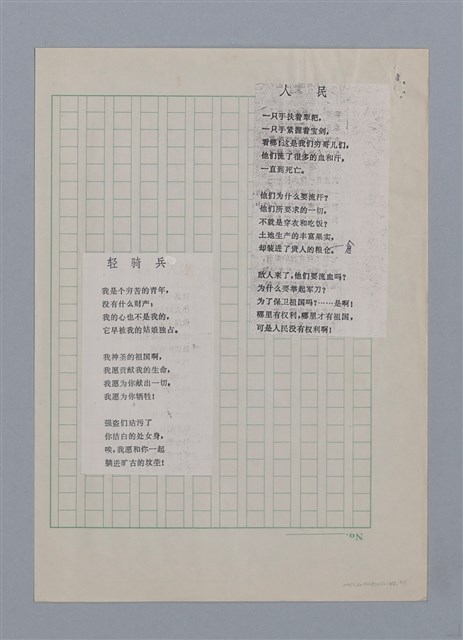 人 民
一只手扶着犁耙，
一只手紧握着宝剑，
看哪！这是我们穷哥儿们，
他们流了很多的血和汗，
一直到死亡。
他们为什么要流汗？
他们所要求的一切，
不就是穿衣和吃饭？
土地生产的丰富果实，
却装进了贵人的粮仓。
敌人来了，他们要流血吗？
为什么要举起军刀？
为了保卫祖国吗？……是啊！
哪里有权利，哪里才有祖国，
可是人民没有权利啊！
轻骑兵
我是个穷苦的青年，
没有什么财产；
我的心也不是我的，
它早被我的姑娘独占。
我神圣的祖国啊，
我愿贡献我的生命，
我愿为你献出一切，
我愿为你牺牲！
强盗们玷污了
你洁白的处女身，
唉，我愿和你一起
躺进旷古的坟茔！
No.